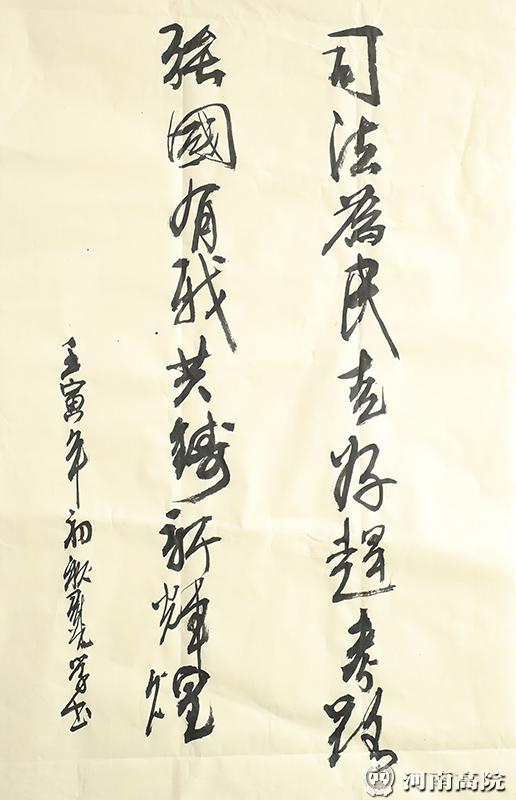 司法為民走好趕考路
强國有我共鑄新輝煌
壬寅年初秋 学书
河南高院